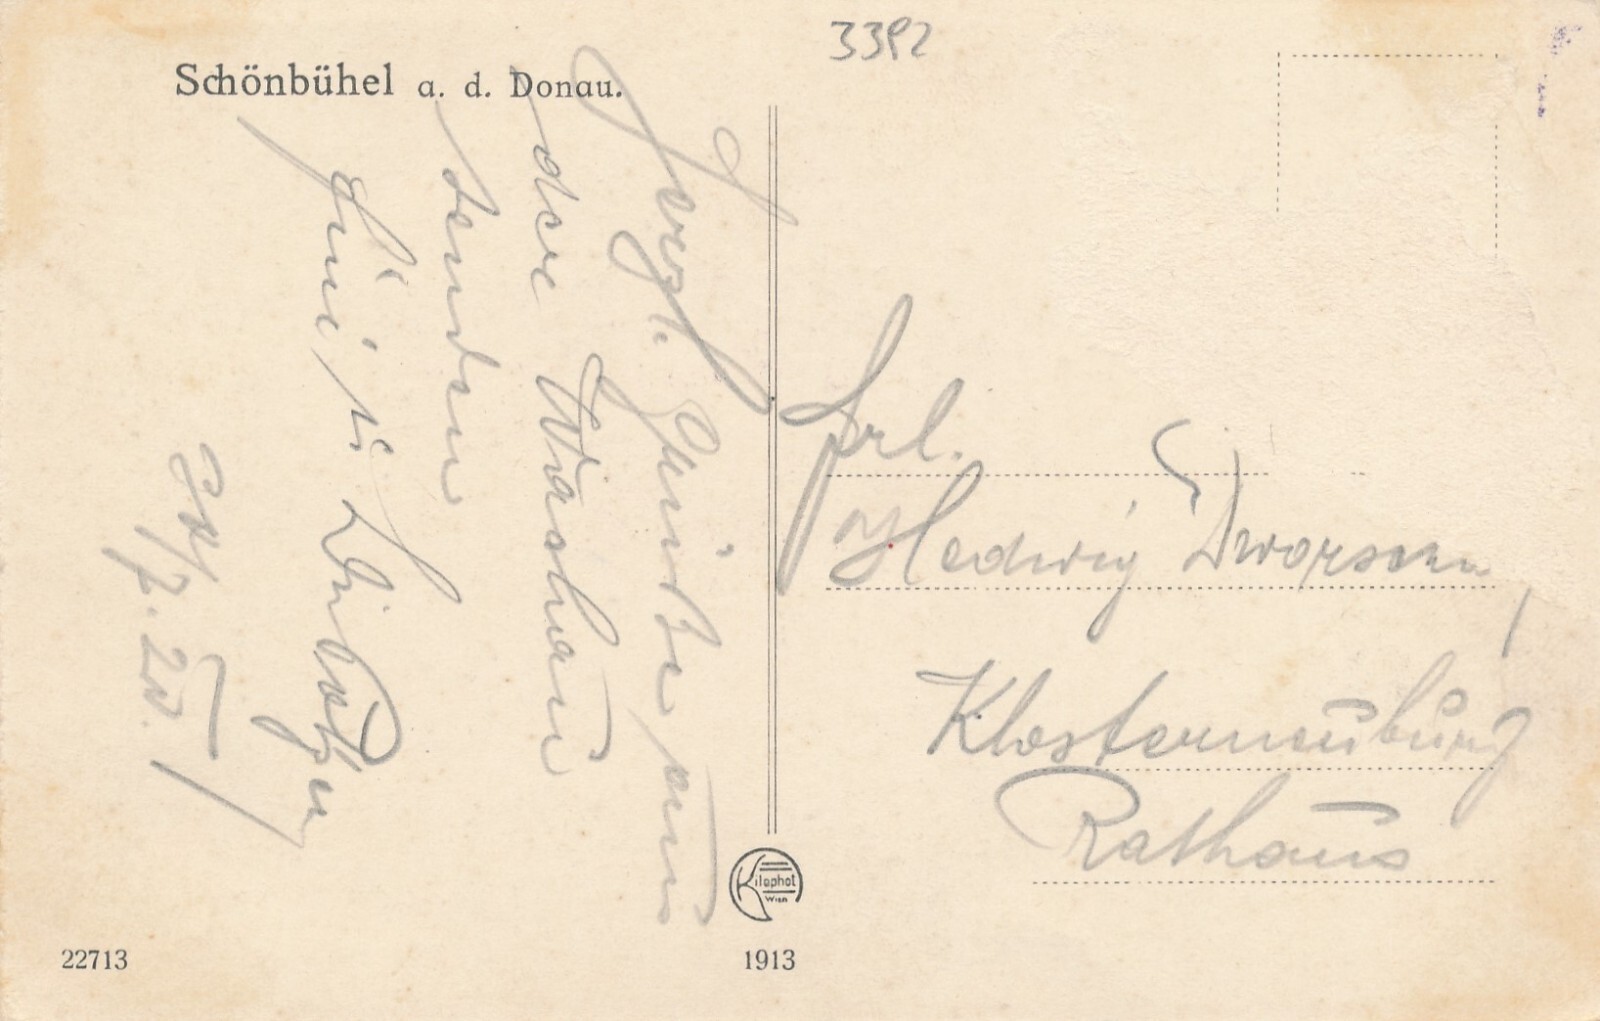 3392
Schönbühel a. d. Donau.
Herzl. Grüße aus
der Wachau
senden
Frl.
Hedwig
Klosterneuburg
Rathaus
Kilophot
Wien
22713
1913